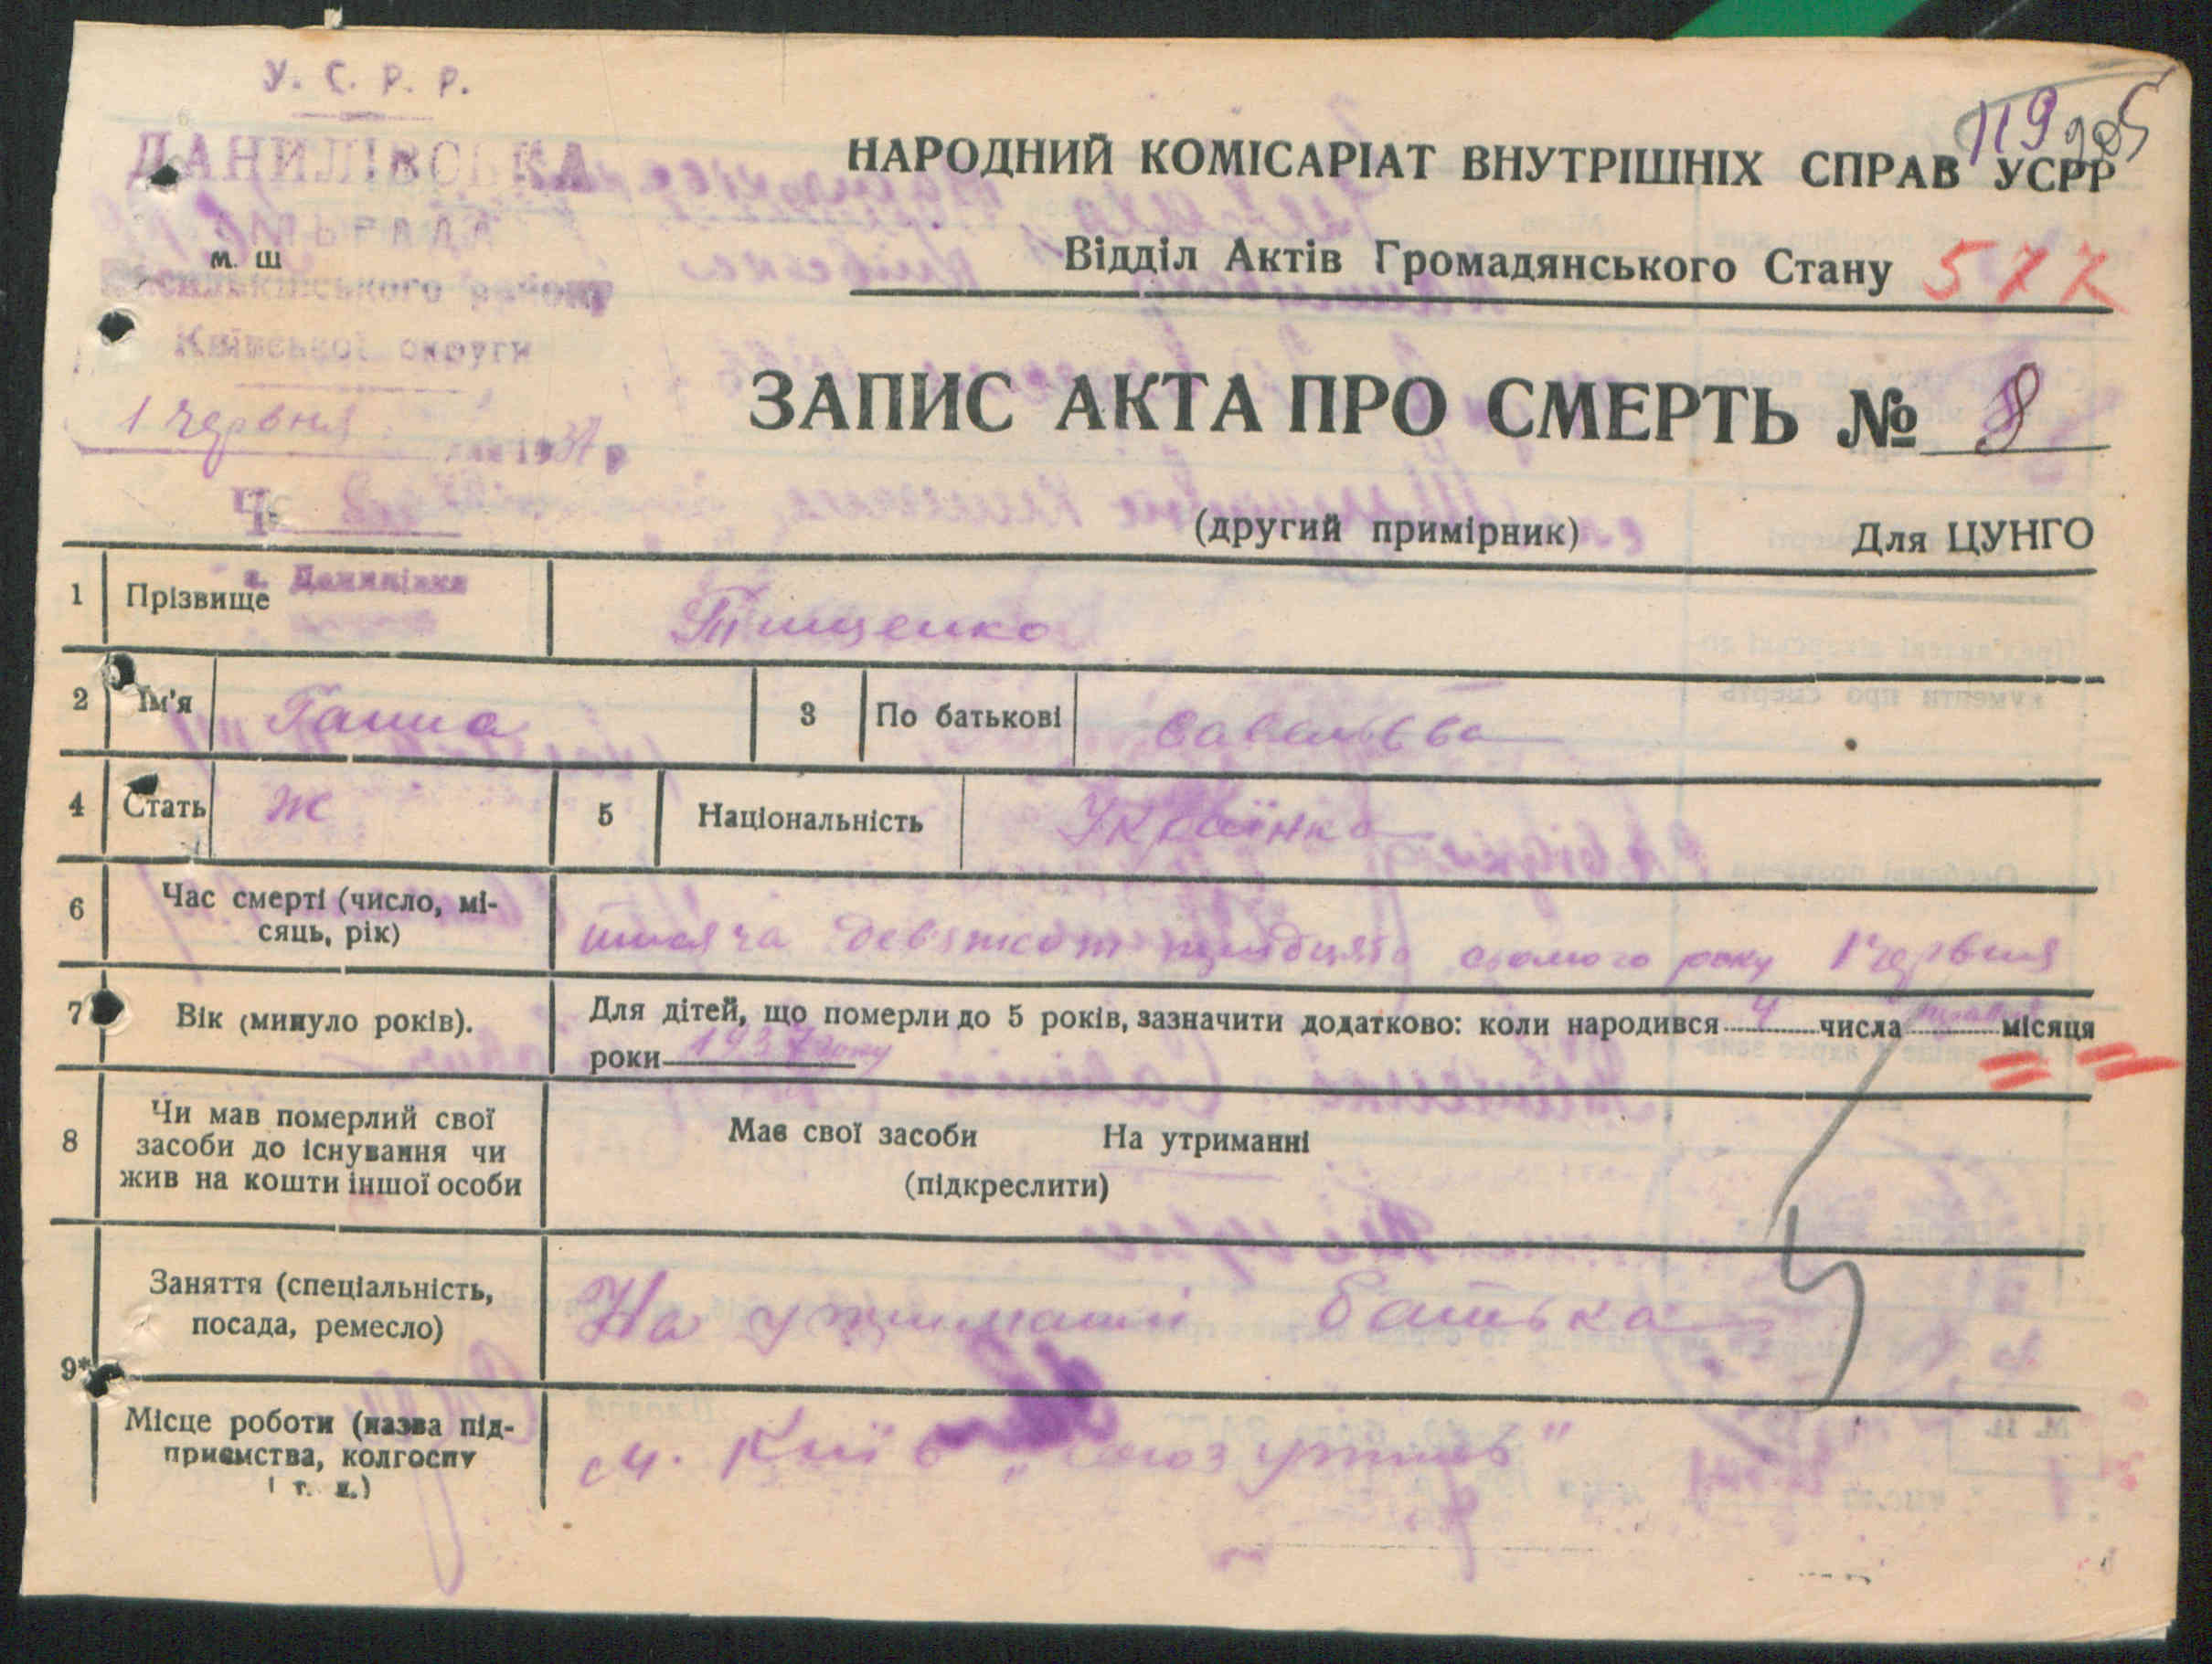 У. С. Р. Р.
ДАНИЛІВСЬКА
СІЛЬРАДА
м. ш
Васильківського району
Київської округи
1 червня 1937 р
Ч. 8
с. Данилівка
119
НАРОДНИЙ КОМІСАРІАТ ВНУТРІШНІХ СПРАВ УСРР
Відділ Актів Громадянського Стану 577
ЗАПИС АКТА ПРО СМЕРТЬ № 8
(другий примірник) Для ЦУНГО
1 Прізвище Тищенко
2 Ім'я Ганна 3 По батькові Савельєва
4 Стать Ж 5 Національність Українка
6 Час смерті (число, мі-
сяць, рік) тисяча девятсот тридцять сьомого року 1 червня
7 Вік (минуло років). Для дітей, що померли до 5 років, зазначити додатково: коли народився 4 числа травня місяця
роки 1937 року
8 Чи мав померлий свої
засоби до існування чи
жив на кошти іншої особи
Має свої засоби На утриманні
(підкреслити)
9* Заняття (спеціальність,
посада, ремесло) На утриманні батька
Місце роботи (назва під-
приємства, колгоспу
і т. и.) м. Київ